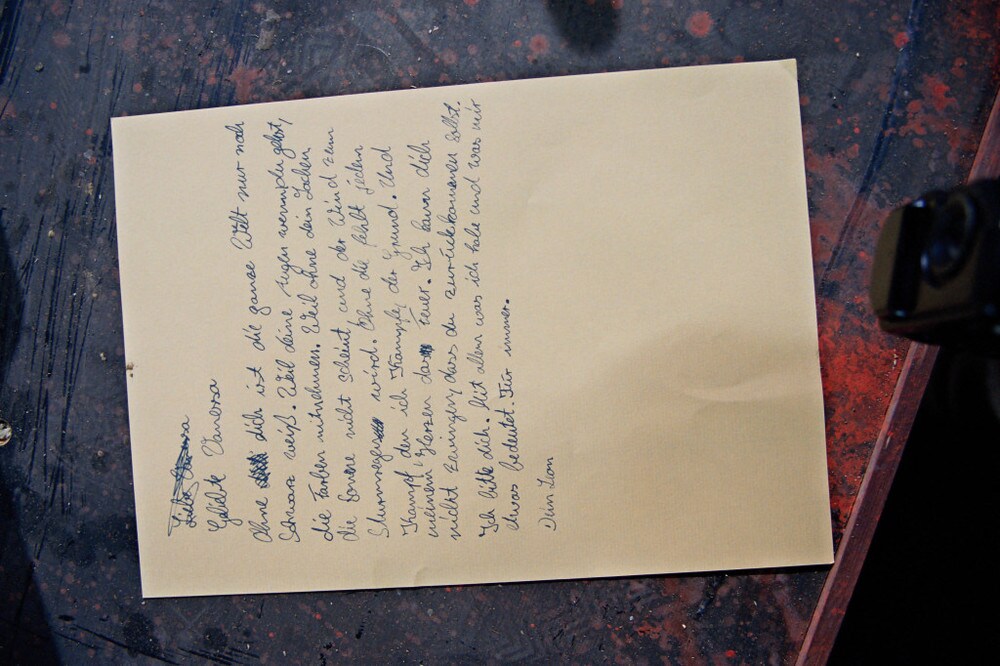 Geliebte Vanessa
Ohne dich ist die ganze Welt nur noch
schwarz weiß. Weil deine Augen wenn du gehst,
die Farben mitnehmen. Weil ohne dein Lachen
die Sonne nicht scheint und der Wind zum
Sturmregen wird. Ohne die fehlt jedem
Kampf den ich kämpfe, der Grund. Und
meinem Herzen das Feuer. Ich kann dich
nicht zwingen, dass du zurückkommen sollst.
Ich bitte dich. Mit allem was ich habe und was mir
etwas bedeutet. Für immer.
Dein